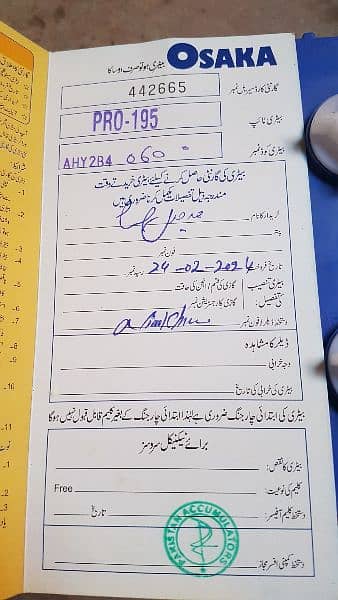 OSAKA بیٹری ہو تو صرف اوساکا
گارنٹی کارڈ سیریل نمبر 442665
بیٹری ٹائپ PRO-195
بیٹری کوڈ نمبر AHY2B4 060
بیٹری کی گارنٹی حاصل کرنے کیلئے بیٹری خریدتے وقت
مندرجہ ذیل تفصیلات مکمل کرنا ضروری ہیں
خریدار کا نام
پتہ
فون نمبر
تاریخ فروخت 24-02-2024 رسید نمبر
بیٹری تنصیب گاڑی کی قسم / انجن کی طاقت
کی تفصیل: گاڑی کا رجسٹریشن نمبر
دستخط ڈیلر / فون نمبر
ڈیلر کا مشاہدہ
وجہ خرابی
بیٹری کی خرابی کی تاریخ
بیٹری کی ابتدائی چارجنگ ضروری ہے لہٰذا ابتدائی چارجنگ کے بغیر کلیم قابل قبول نہیں ہوگا
برائے ٹیکنیکل سروسز
بیٹری کا نقص:
کلیم کی نوعیت: Free
دستخط کلیم آفیسر: تاریخ
دستخط کمپنی افسر مجاز:
PAKISTAN ACCUMULATORS